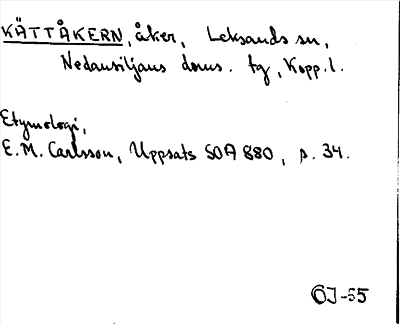 KÄTTÅKERN, åker, Leksands sn,
Nedansiljans doms. tg, Kopp. l.
Etymologi,
E. M. Carlsson, Uppsats SOA 880, s. 34.
ÖJ-55